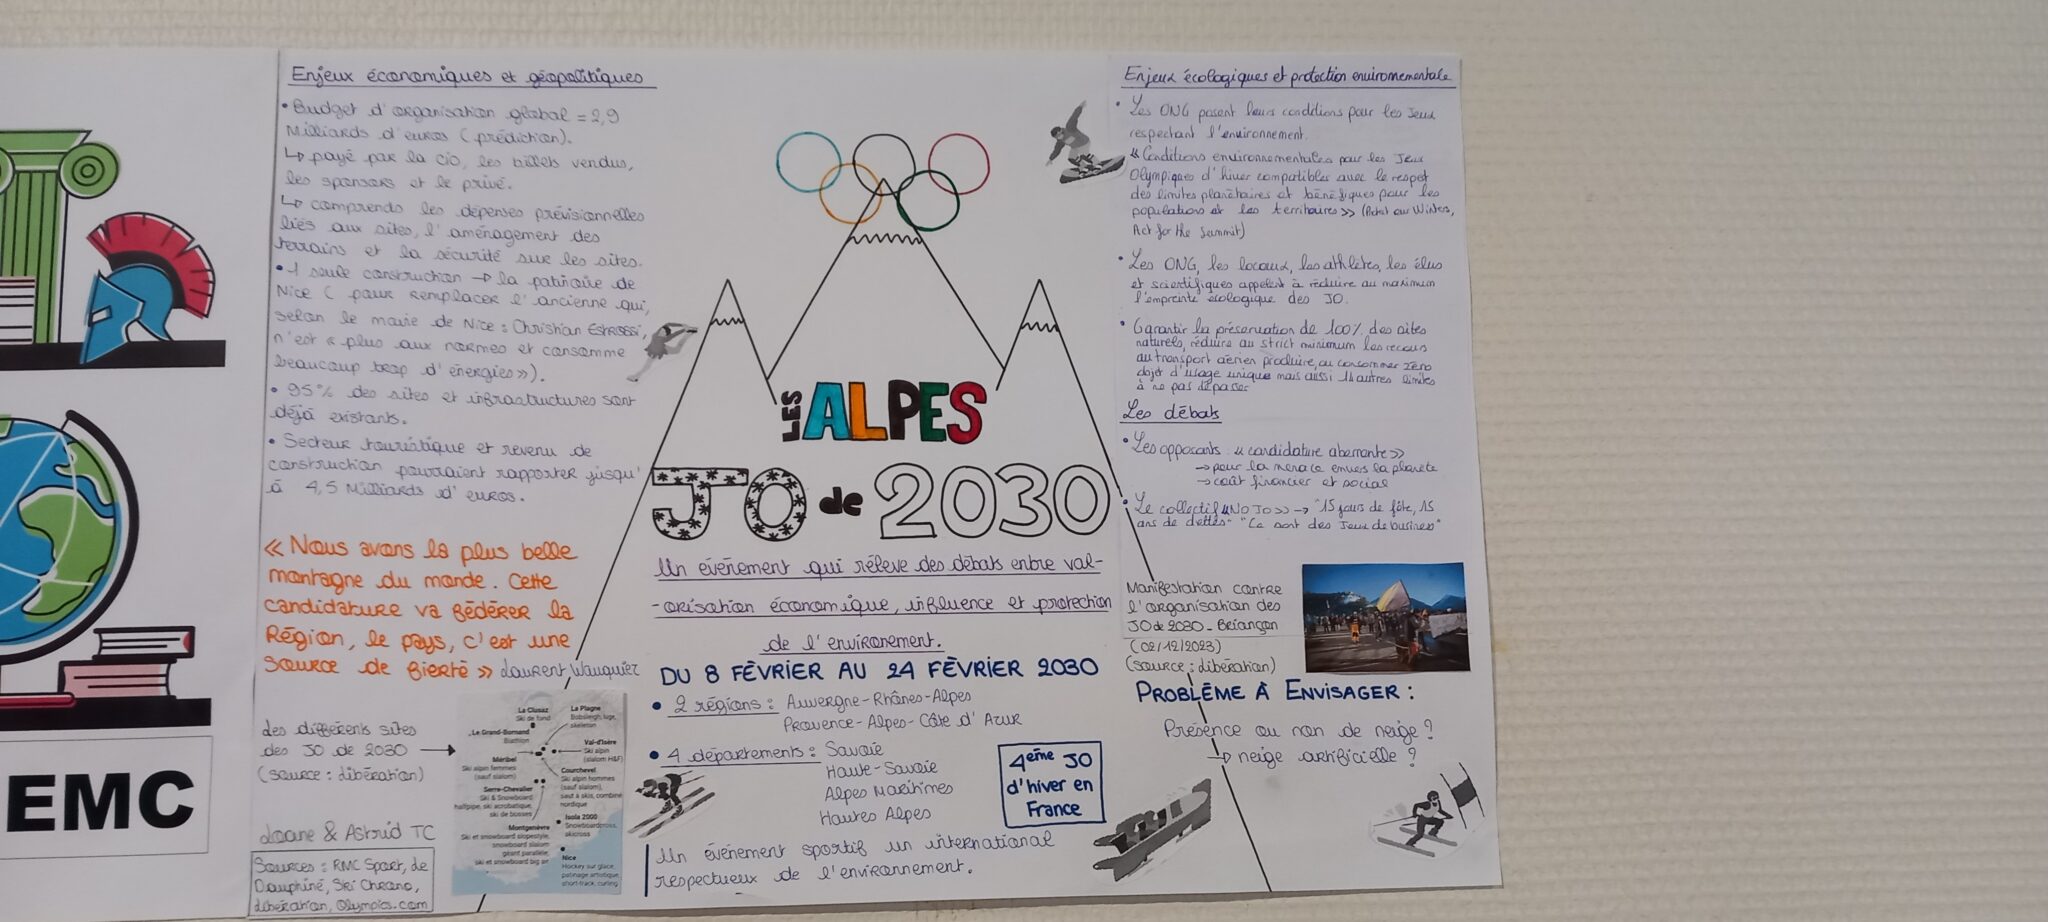 Enjeux économiques et géopolitiques
• Budget d'organisation global = 2,9
Milliards d'euros (prédiction).
↳ payé par la CIO, les billets vendus,
les sponsors et le privé.
↳ comprends les dépenses prévisionnelles
liés aux sites, l'aménagement des
terrains et la sécurité sur les sites.
• 1 seule construction → la patinoire de
Nice (pour remplacer l'ancienne qui,
selon le maire de Nice : Christian Estrosi,
n'est « plus aux normes et consomme
beaucoup trop d'énergies »).
• 95% des sites et infrastructures sont
déjà existants.
• Secteur touristique et revenu de
construction pourraient rapporter jusqu'
à 4,5 Milliards d'euros.
« Nous avons la plus belle
montagne du monde. Cette
candidature va fédérer la
Région, le pays, c'est une
source de fierté » Laurent Wauquier
Les différents sites
des JO de 2030 →
(source : libération)
La Clusaz
Ski de fond
Le Grand-Bornand
Biathlon
La Plagne
Bobsleigh, luge,
skeleton
Val-d'Isère
Ski alpin
(slalom H&F)
Méribel
Ski alpin femmes
(sauf slalom)
Courchevel
Ski alpin hommes
(sauf slalom),
saut à skis, combiné
nordique
Serre-Chevalier
Ski & Snowboard
halfpipe, ski acrobatique,
ski de bosses
Isola 2000
Snowboardcross,
skicross
Montgenèvre
Ski et snowboard slopestyle,
snowboard slalom
géant parallèle,
ski et snowboard big air
Nice
Hockey sur glace,
patinage artistique,
short-track, curling
EMC
Loane & Astrid TC
Sources : RMC Sport, Le
Dauphiné, Ski Chrono,
Libération, Olympics.com
LES ALPES
JO de 2030
Un événement qui rélève des débats entre val-
-orisation économique, influence et protection
de l'environement.
DU 8 FÉVRIER AU 24 FÉVRIER 2030
• 2 régions : Auvergne-Rhônes-Alpes
Provence-Alpes-Côte d'Azur
• 4 départements : Savoie
Haute-Savoie
Alpes Maritimes
Hautes Alpes
4ème JO
d'hiver en
France
Un événement sportif un international
respectueux de l'environnement.
Enjeux écologiques et protection environnementale
• Les ONG posent leurs conditions pour les Jeux
respectant l'environnement.
« Conditions environnementales pour les Jeux
Olympiques d'hiver compatibles avec le respet
des limites planétaires et bénéfiques pour les
populations et les territoires » (Protect our Winters,
Act for the Summit)
• Les ONG, les locaux, les athlètes, les élus
et scientifiques appelent à réduire au maximum
l'empreinte écologique des JO.
• Garantir la préservation de 100% des sites
naturels, réduire au strict minimum les recours
au transport aérien produire, ou consommer zéro
objet d'usage unique mais aussi 11 autres limites
à ne pas dépasser
Les débats
• Les opposants : « candidature aberrante »
→ pour la menace envers la planète
→ coût financier et social
• Le collectif « NO JO » → "15 jours de fête, 15
ans de dettes" "Ce sont des Jeux de business"
Manifestation contre
l'organisation des
JO de 2030 - Briançon
(02/12/2023)
(source : libération)
PROBLÈME À ENVISAGER :
Présence ou non de neige ?
↳ neige artificielle ?